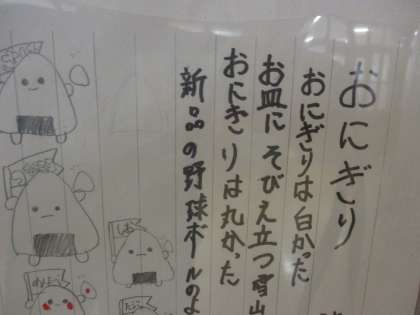 おにぎり
おにぎりは白かった
お皿にそびえ立つ雪山
おにぎりは丸かった
新品の野球ボールのよ
しお